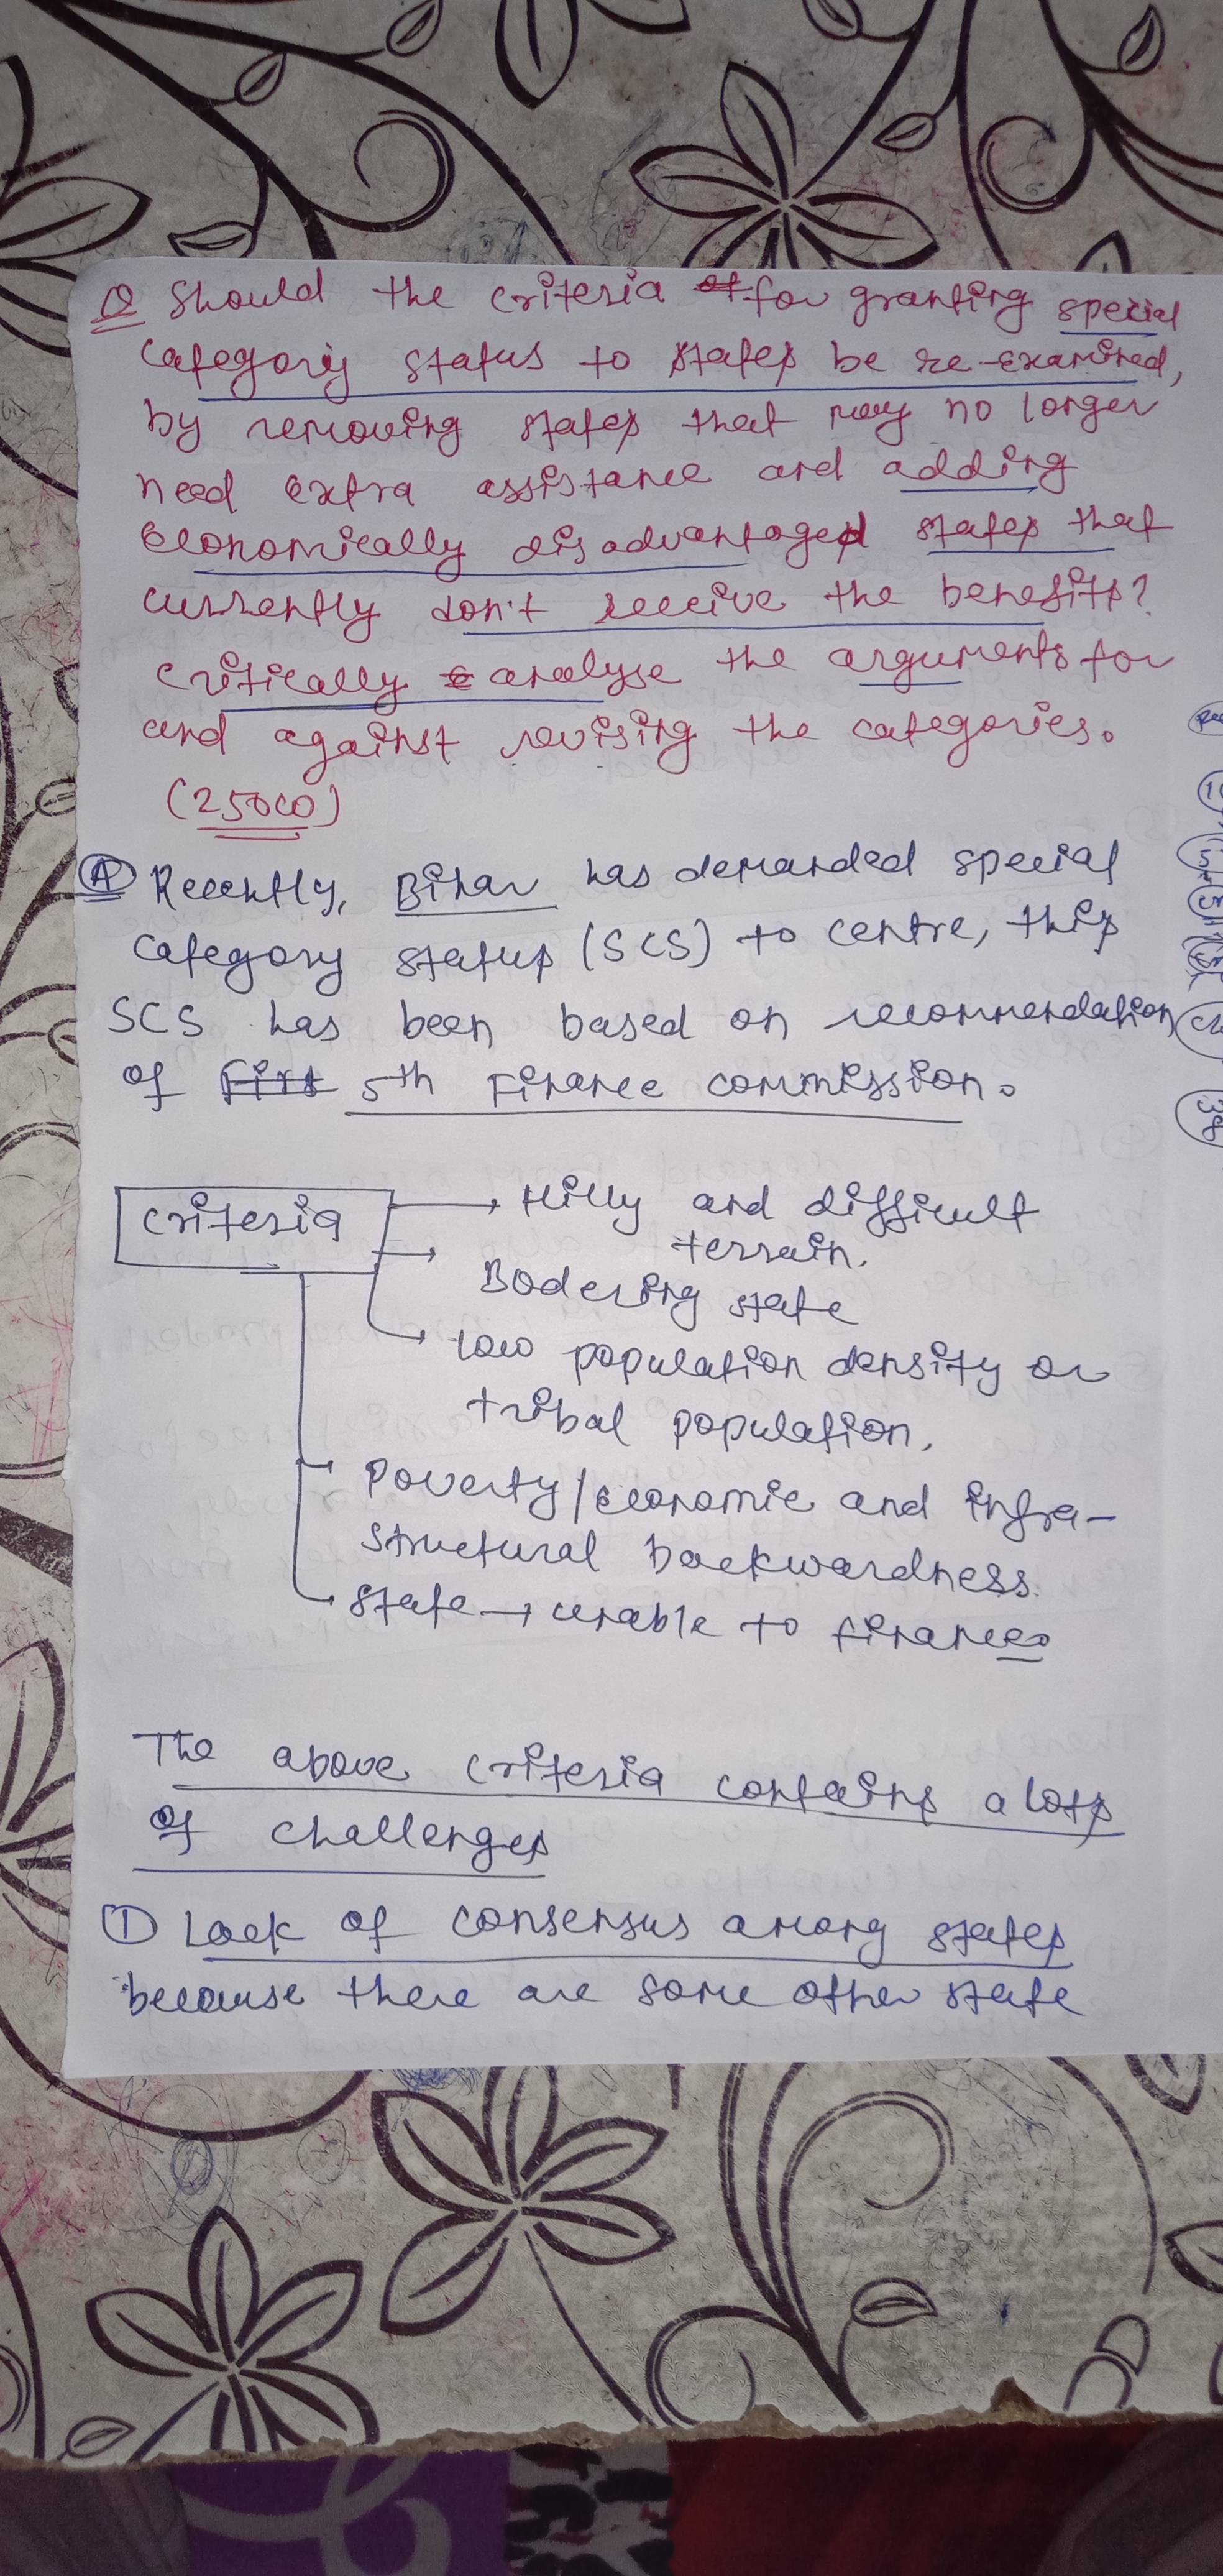 Q Should the criteria of for granting special
category status to states be re-examined,
by removing states that may no longer
need extra assistance and adding
economically disadvantaged states that
currently don't receive the benefits?
critically analyse the arguments for
and against revising the categories.
(250W)
A Recently, Bihar has demanded special
category status (SCS) to centre, this
SCS has been based on recommendation
of First 5th Finance commission.
criteria → Hilly and difficult
terrain.
→ Bodering state
→ low population density or
tribal population.
→ Poverty/economic and infra-
structural backwardness.
→ state → unable to finances
The above criteria contains a lots
of challenges
① Lack of consensus among states
because there are some other state